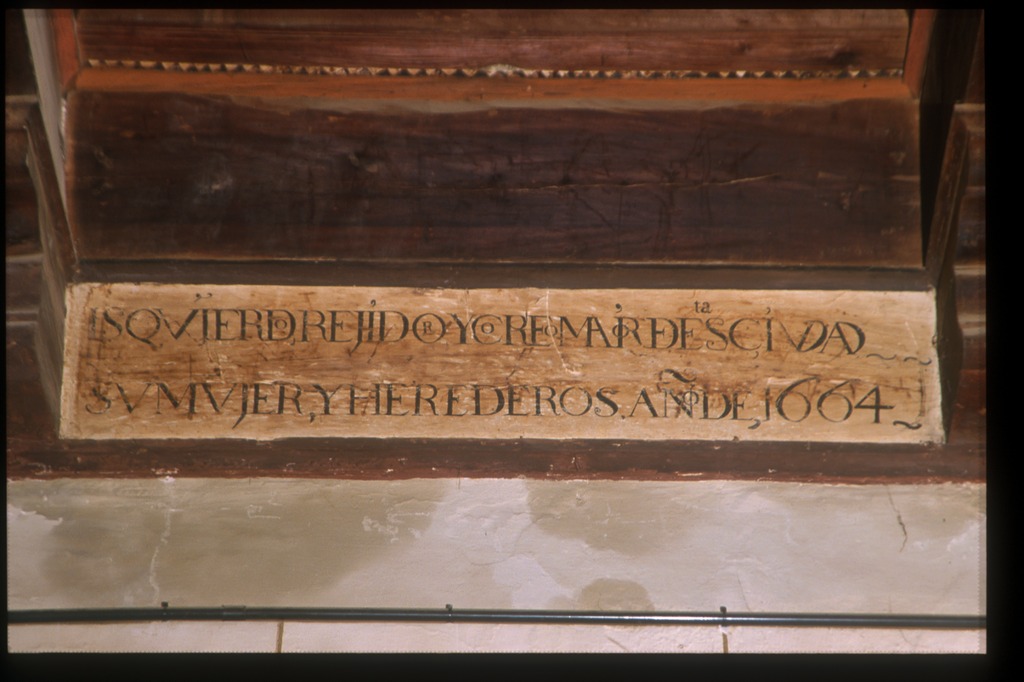 ISQVIERDO, REJIDOR Y CORREO MAIOR DE ESta CIVDAD
SV MVJER, Y HEREDEROS. AÑO DE, 1664